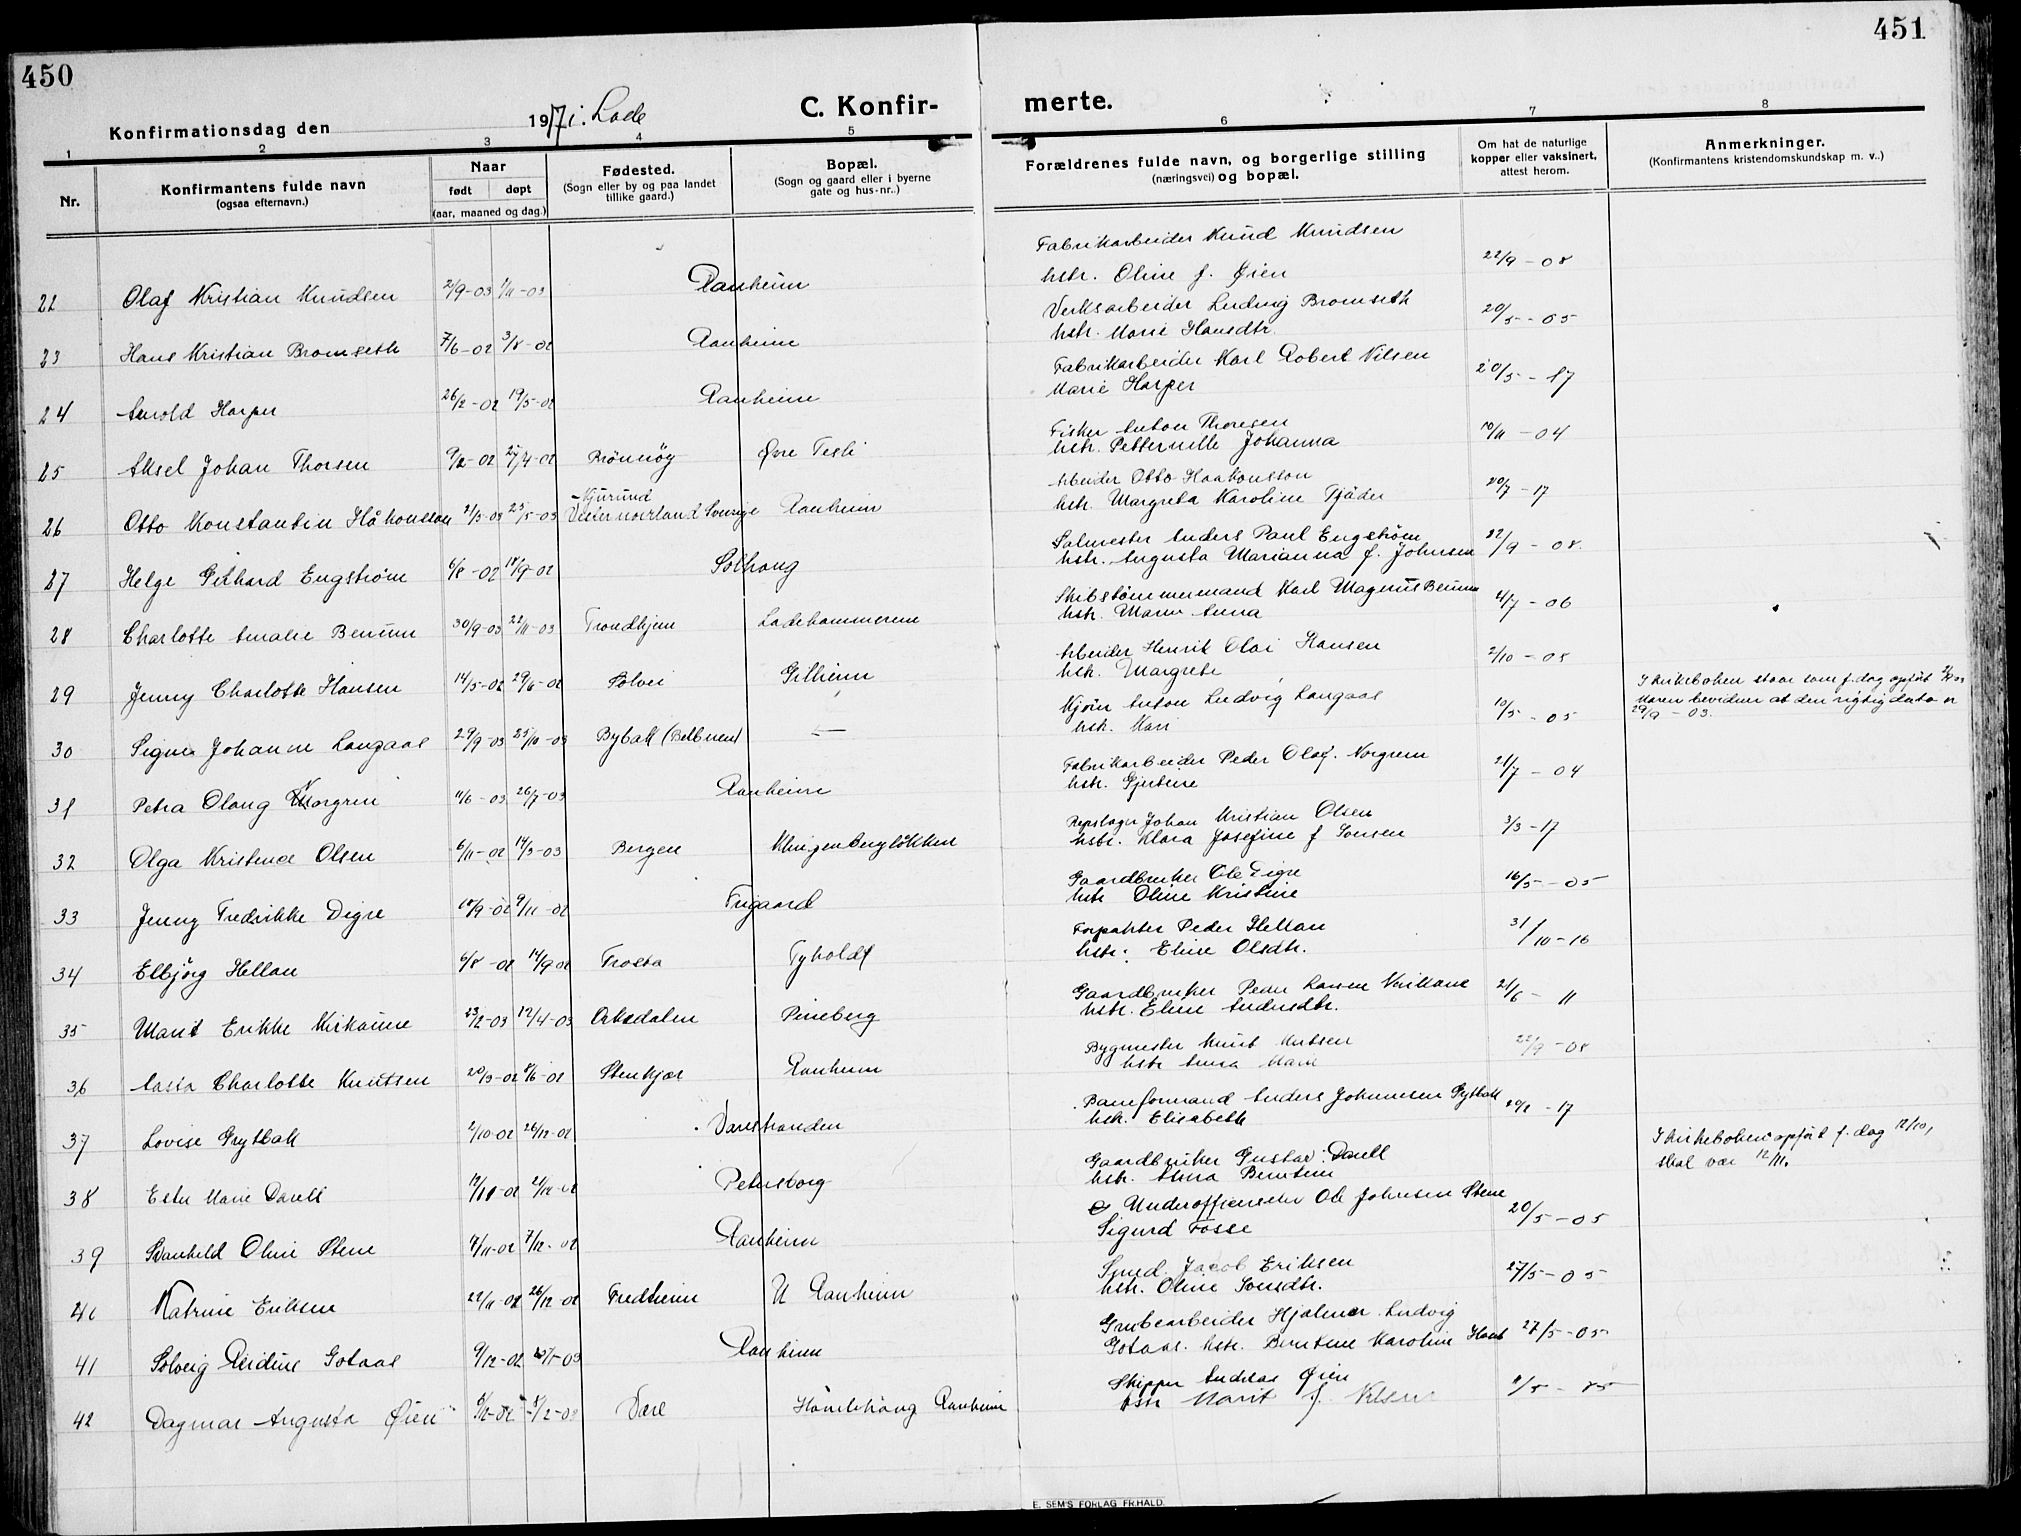 450
451
Konfirmationsdag den 1917 i Lade
C. Konfir-
merte.
1 2 3 4 5 6 7 8
Nr.
Konfirmantens fulde navn
(ogsaa efternavn.)
Naar
født døpt
(aar, maaned og dag.)
Fødested.
(Sogn eller by og paa landet
tillike gaard.)
Bopæl.
(Sogn og gaard eller i byerne
gate og hus-nr.)
Forældrenes fulde navn, og borgerlige stilling
(næringsvei) og bopæl.
Om hat de naturlige
kopper eller vaksinert,
attest herom.
Anmerkninger.
(Konfirmantens kristendomskundskap m. v.)
Fabrikarbeider Knud Knudsen
22 Olaf Kristian Knudsen 2/9-03 1/11-03 Ranheim hstr. Oline f. Øien 22/9-08
Verksarbeider Ludvig Bromseth
23 Hans Kristian Bromseth 7/6-02 3/8-02 Ranheim hstr. Marie Hansdtr. 20/5-05
Fabrikarbeider Karl Robert Nilsen
24 Arnold Harper 26/2-02 19/5-02 Ranheim Marie Harper 20/5-17
Fisker Anton Thoresen
25 Aksel Johan Thorsen 9/2-02 27/4-02 Brönnöy Øvre Tesli hstr. Petternille Johanna 10/11-04
Arbeider Otto Haakonsson
26 Otto Konstantin Håkonsson 2/3-03 23/5-03 Njurund Vesternorrland Sverige Ranheim hstr. Margreta Karoline Tjäder 20/7-17
Salmester Anders Paul Engstrøm
27 Helge Gerhard Engstrøm 6/8-02 18/9-02 Solhaug hstr. Augusta Marianna f. Johnsen 22/9-08
Skibstömmermand Karl Magnus Benum
28 Charlotte Amalie Benum 30/9-03 22/11-03 Trondhjem Ladehammeren hstr. Maren Anna 4/7-06
Arbeider Henrik Olai Hansen
29 Jenny Charlotte Hansen 14/5-02 29/6-02 Solvei Gilheim hstr. Margrete 2/10-05
Kjörer Anton Ludvig Langaas
30 Signe Johanne Langaas 29/9-03 25/10-03 Bybak (Belbuen) — hstr. Mari 10/5-05
I kirkeboken staar som f. dag opført
Maren bevidner at den rigtig dato er
29/9-03.
Fabrikarbeider Peder Olaf Norgrem
31 Petra Olaug Norgren 11/6-03 26/7-03 Ranheim hstr. Gjertine 21/7-04
Repslager Johan Kristian Olsen
32 Olga Kristence Olsen 6/11-02 14/3-03 Bergen Klingenberglökken hstr. Klara Josefine f Svensen 3/3-17
Gaardbruker Ole Digre
33 Jenny Fredrikke Digre 10/9-02 9/11-02 Frigaard hstr Oline Kristine 16/5-05
Forpakter Peder Hellan
34 Elbjörg Hellan 6/8-02 14/9-02 Frosta Tyholdt hstr: Elise Olsdtr. 31/10-16
Gaardbruker Peder Larsen Kirkaune
35 Marit Erikke Kirkaune 23/2-03 12/4-03 Orkedalen Pineberg hstr. Eline Andersdtr. 21/6-11
Bygmester Knut Knutsen
36 Aasta Charlotte Knutsen 20/3-02 8/6-02 Stenkjær Ranheim hstr Anna Marie 22/9-08
Baneformand Anders Johannesen Grytbak
37 Lovise Grytbak 2/10-02 26/12-02 Værestranden hstr. Elisabeth
Gaardbruker Gustav Darell
38 Ester Marie Darell Petersborg hstr. Anna Berntine
I kirkeboken opført f. dag 12/10,
skal være 12/11.
Underofficerselev Ole Johnsen Stene
39 Svanhild Oline Stene 4/11-02 7/12-02 Ranheim Sigurd Fosse 20/5-05
Smed Jacob Eriksen
40 Katrine Eriksen 22/11-02 26/12-02 Fredheim U Ranheim hstr. Oline Svensdtr. 27/5-05
Grubearbeider Hjalmar Ludvig
41 Solveig Reidine Gotaas 9/12-02 Ranheim Gotaas. hstr. Berntine Karoline 27/5-05
Skipper Andreas Øien
42 Dagmar Augusta Øien Være Ranheim hstr Marit f. Nilsen
E. SEM'S FORLAG FR.HALD.